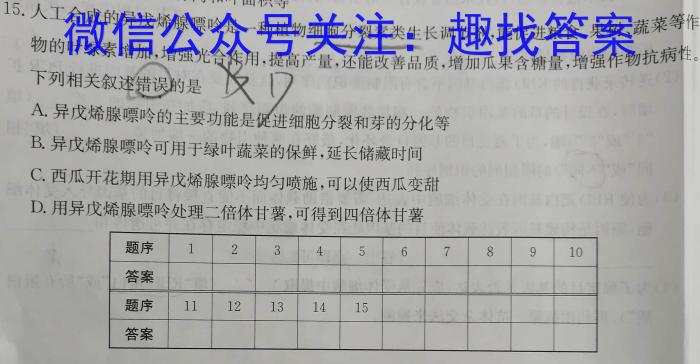 微信公众号关注：趣找答案
15. 人工合成的异戊烯腺嘌呤是一种植物细胞分裂素类生长调节
果树、蔬菜等作
物的叶绿素增加,增强光合作用,提高产量,还能改善品质,增加瓜果含糖量,增强作物抗病性。
下列相关叙述错误的是 B D
A. 异戊烯腺嘌呤的主要功能是促进细胞分裂和芽的分化等
B. 异戊烯腺嘌呤可用于绿叶蔬菜的保鲜,延长储藏时间
C. 西瓜开花期用异戊烯腺嘌呤均匀喷施,可以使西瓜变甜
D. 用异戊烯腺嘌呤处理二倍体甘薯,可得到四倍体甘薯
题序 1 2 3 4 5 6 7 8 9 10
答案
题序 11 12 13 14 15
答案